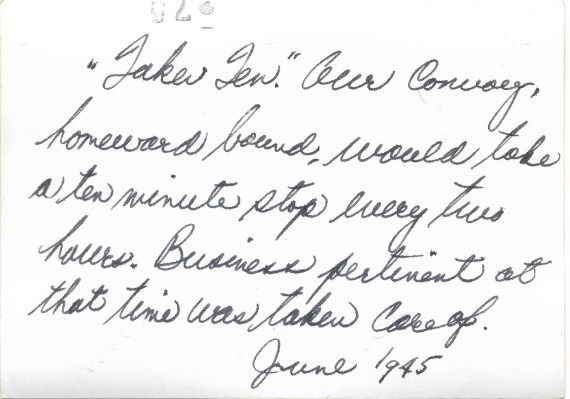 "Take Ten." Our Convoy,
homeward bound, would take
a ten minute stop every two
hours. Business pertinent at
that time was taken care of.
June 1945